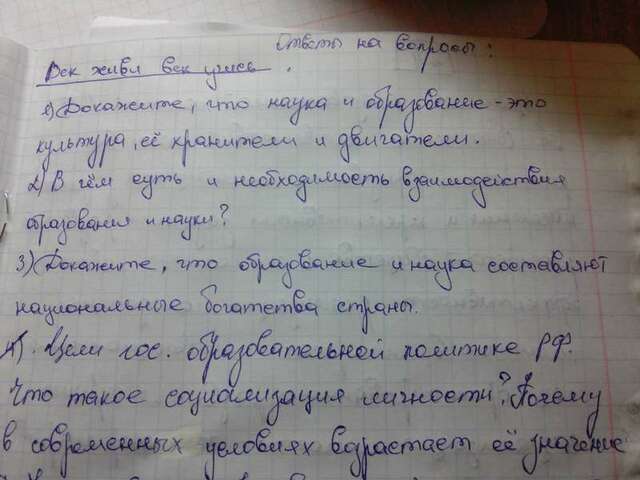 Ответы на вопросы:
Век живи век учись.
1) Докажите, что наука и образование - это
культура, её хранители и двигатели.
2) В чём суть и необходимость взаимодействия
образования и науки?
3) Докажите, что образование и наука составляют
национальные богатства страны.
4). Цели гос. образовательной политике РФ.
Что такое социализация личности? Почему
в современных условиях возрастает её значение